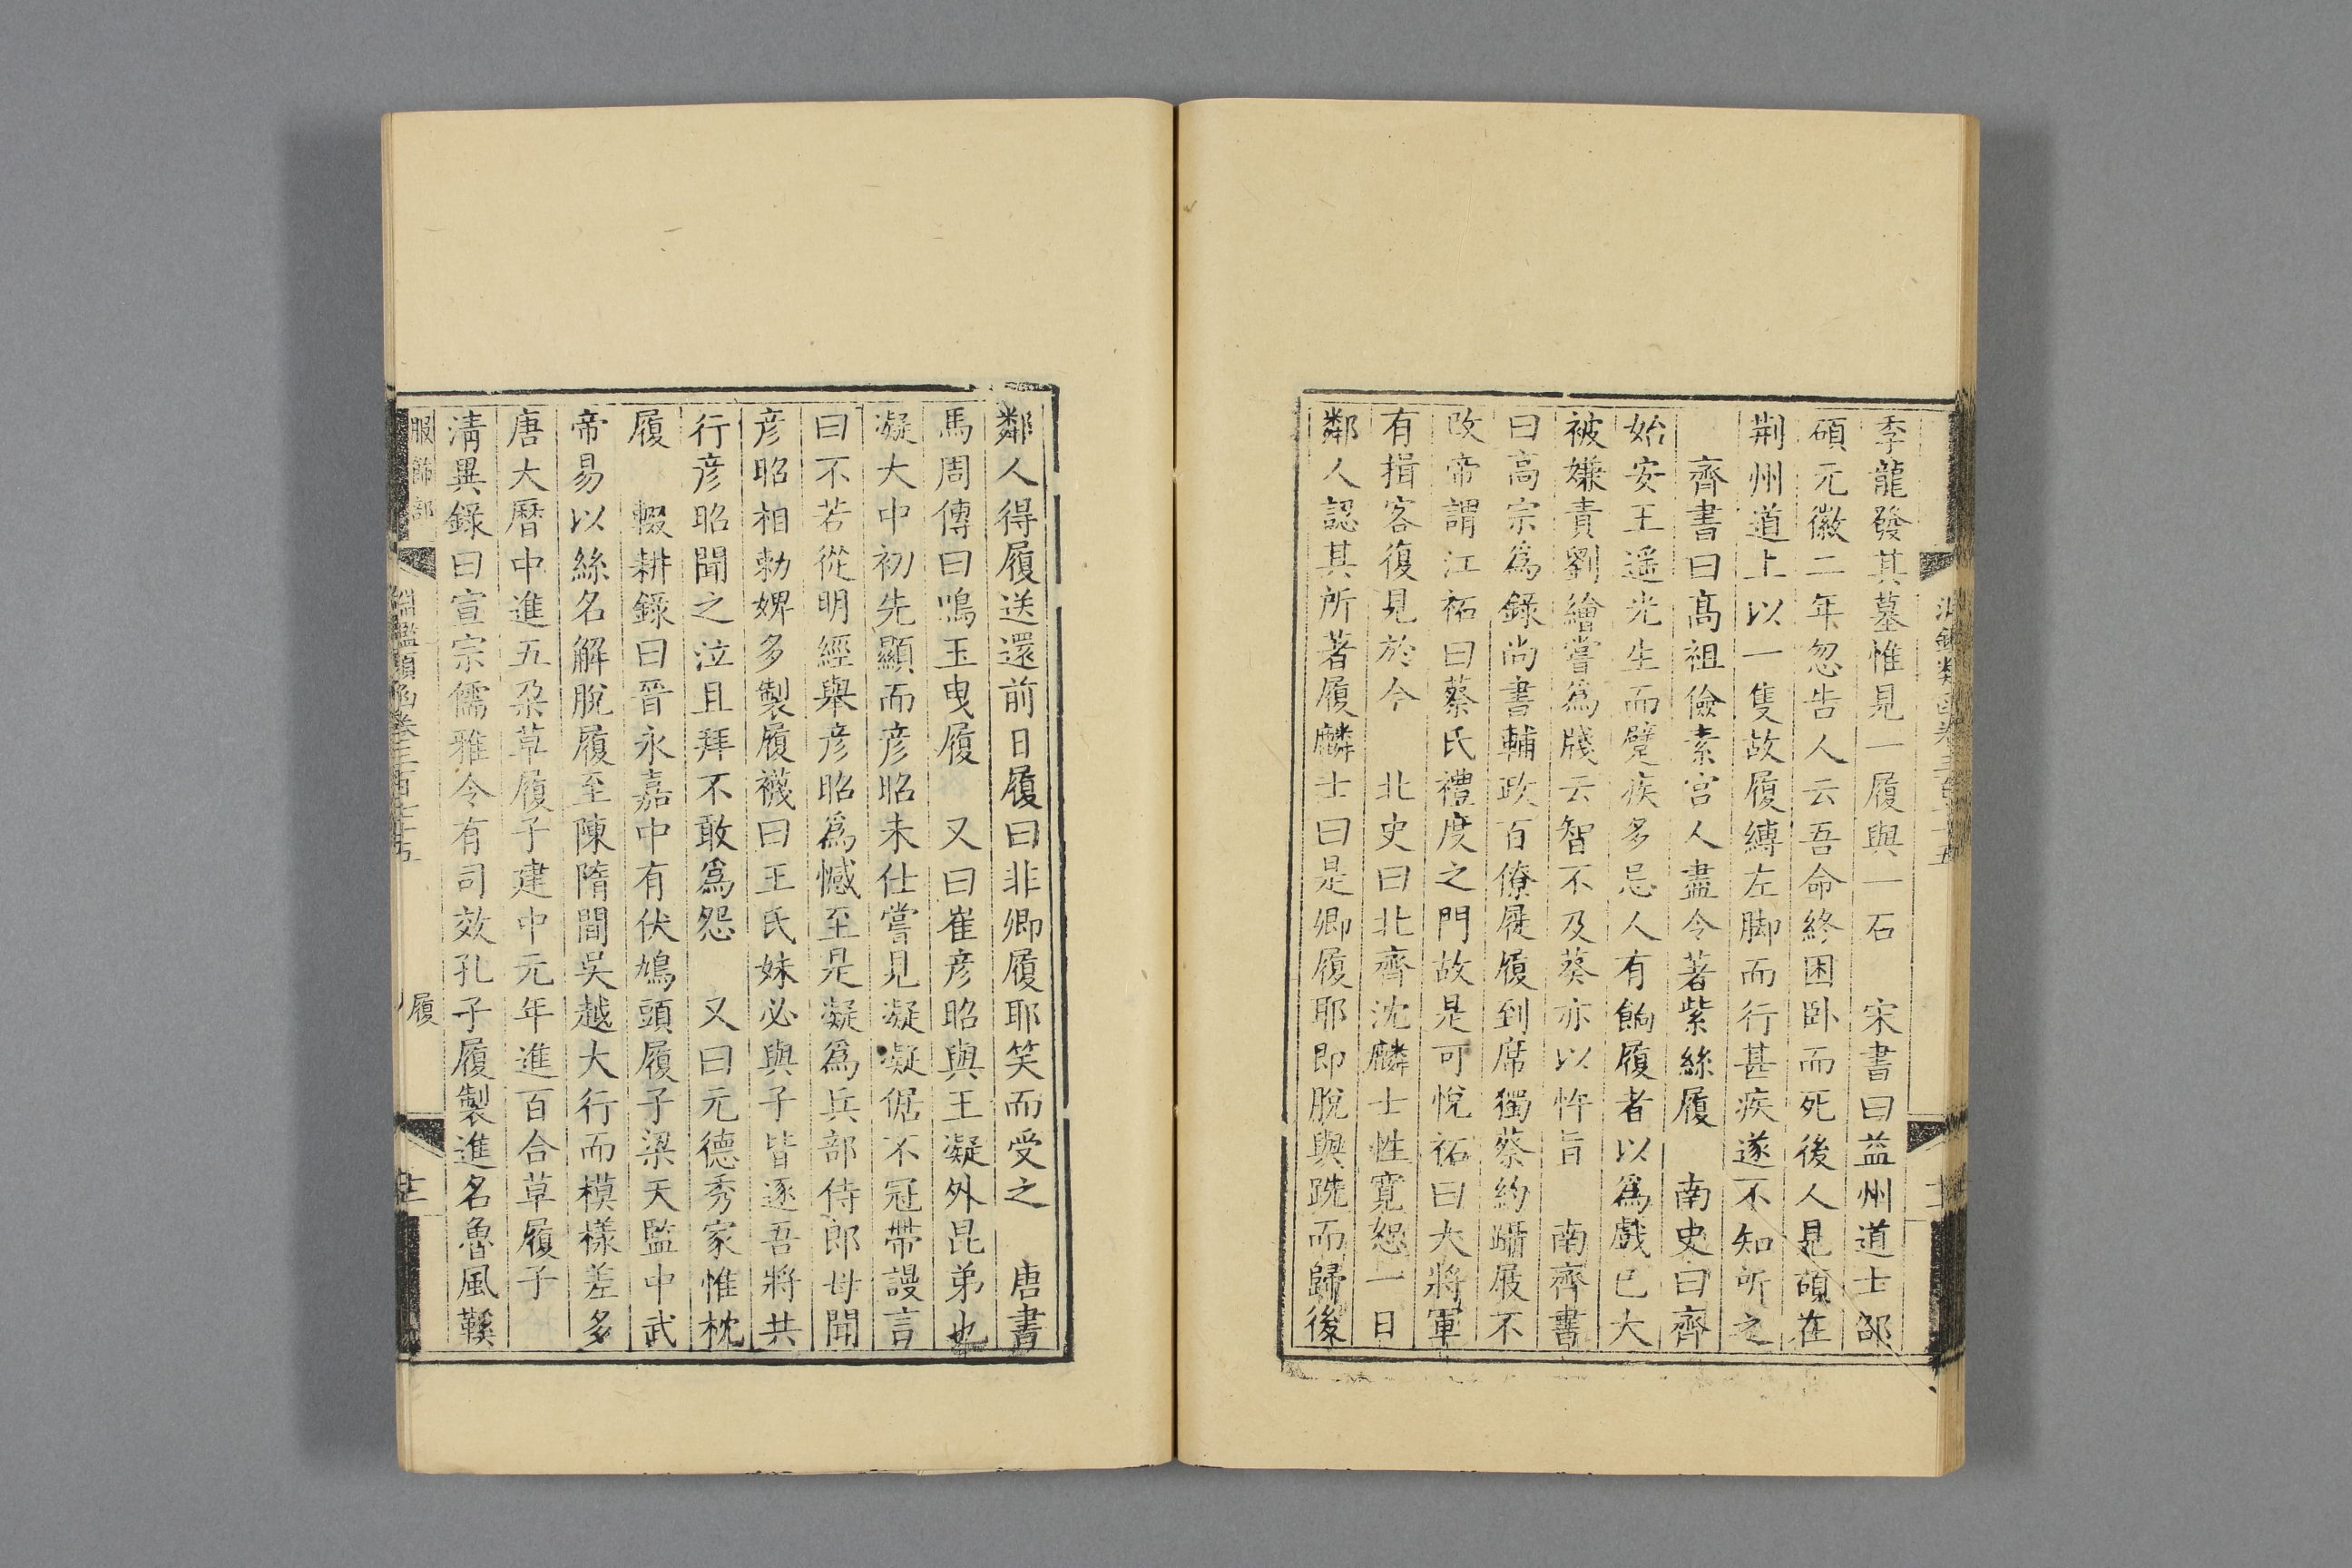 季龍發其墓惟見一履與一石　宋書曰益州道士邵
碩元徽二年忽告人云吾命終因臥而死後人見碩在
荆州道上以一隻故履縛左脚而行甚疾遂不知所之
齊書曰髙祖儉素宫人盡令著紫絲履　南史曰齊
始安王遥光生而躄疾多忌人有餉履者以爲戲已大
被嫌責劉繪嘗爲牋云智不及葵亦以忤旨　南齊書
曰高宗爲錄尚書輔政百僚屣履到席獨蔡約躡屐不
改帝謂江祏曰蔡氏禮度之門故是可悅祏曰大將軍
有揖客復見於今　北史曰北齊沈麟士性寛恕一日
鄰人認其所著履麟士曰是卿履耶即脫與跣而歸後
鄰人得履送還前日履曰非卿履耶笑而受之　唐書
馬周傳曰鳴玉曳履　又曰崔彦昭與王凝外昆弟也
凝大中初先顯而彦昭未仕嘗見凝凝倨不冠帶謾言
曰不若從明經舉彦昭爲憾至是凝爲兵部侍郎母聞
彦昭相勅婢多製履襪曰王氏妹必與子皆逐吾將共
行彦昭聞之泣且拜不敢爲怨　又曰元德秀家惟枕
履　輟耕錄曰晉永嘉中有伏鳩頭履子梁天監中武
帝易以絲名解脫履至陳隋間吳越大行而模樣差多
唐大曆中進五朶草履子建中元年進百合草履子
清異錄曰宣宗儒雅令有司效孔子履製進名魯風鞵
服飾部
淵鑑類函卷三百七十五
履